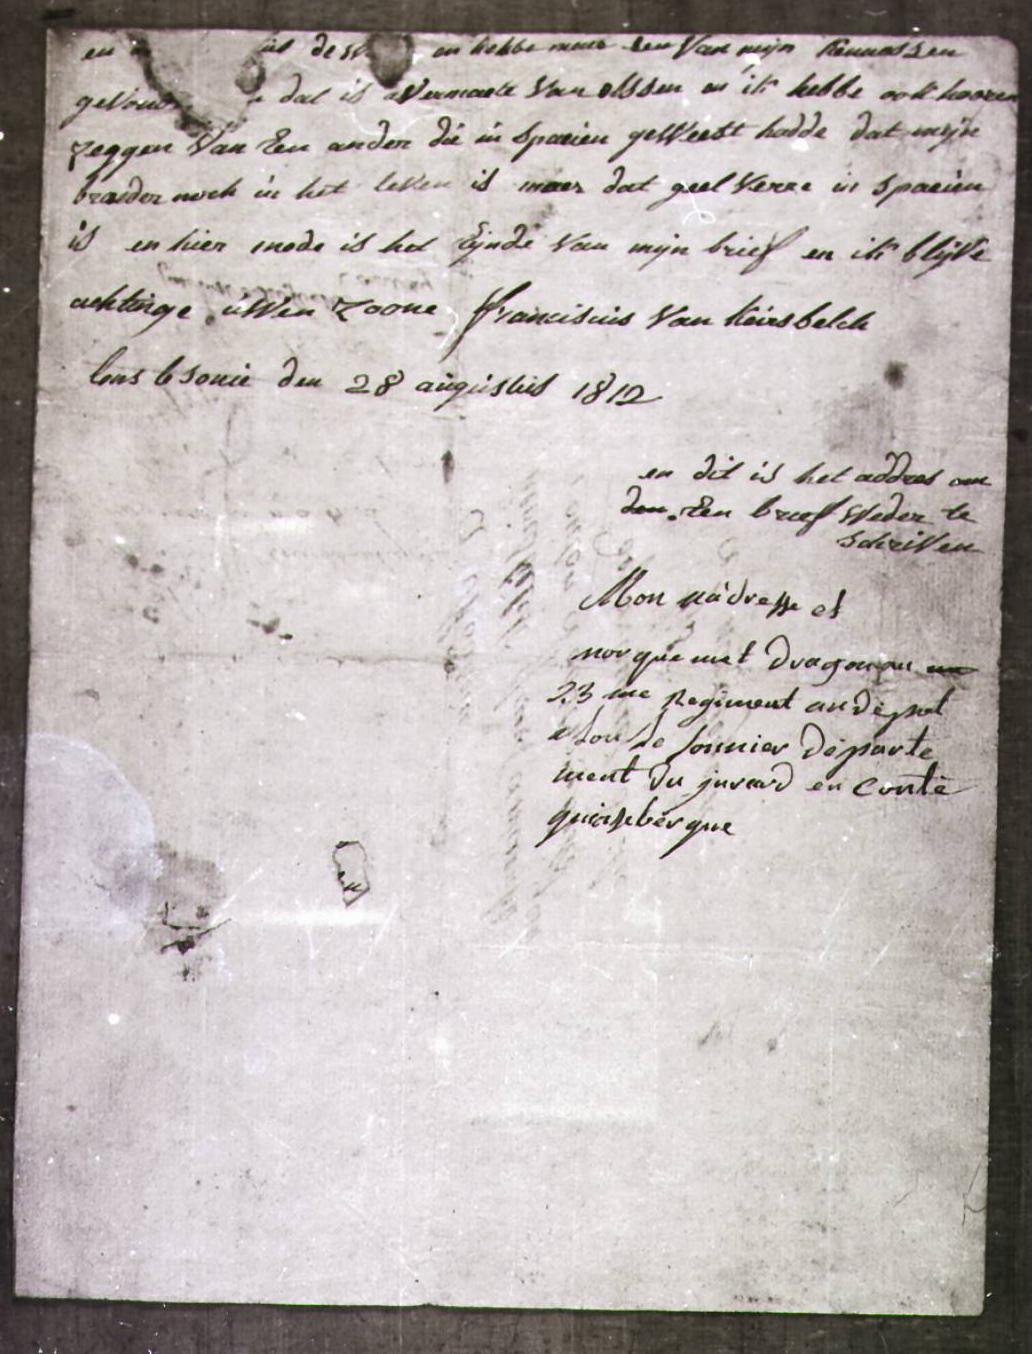 en en hebbe maer een Van mijn kennassen
dat is Vermaele Van olssen en ik hebbe ook hooren
zeggen Van Een ander die in Spaeien geWeest hadde dat mijn
braeder noch in het leven is maer dat geel Verre in Spaeien
is en hier mede is het Eijnde Van mijn brief en ik blijVe
achtinge uWen zoone franciscus Van keirsbelck
lons le sonie den 28 augustus 1812
en dit is het addres om
den Een brief Weder te
schriVen
Mon adresse et
dragon au
23 me Regiment au dépot
a lon de sonnier départe
ment du jurard en conté